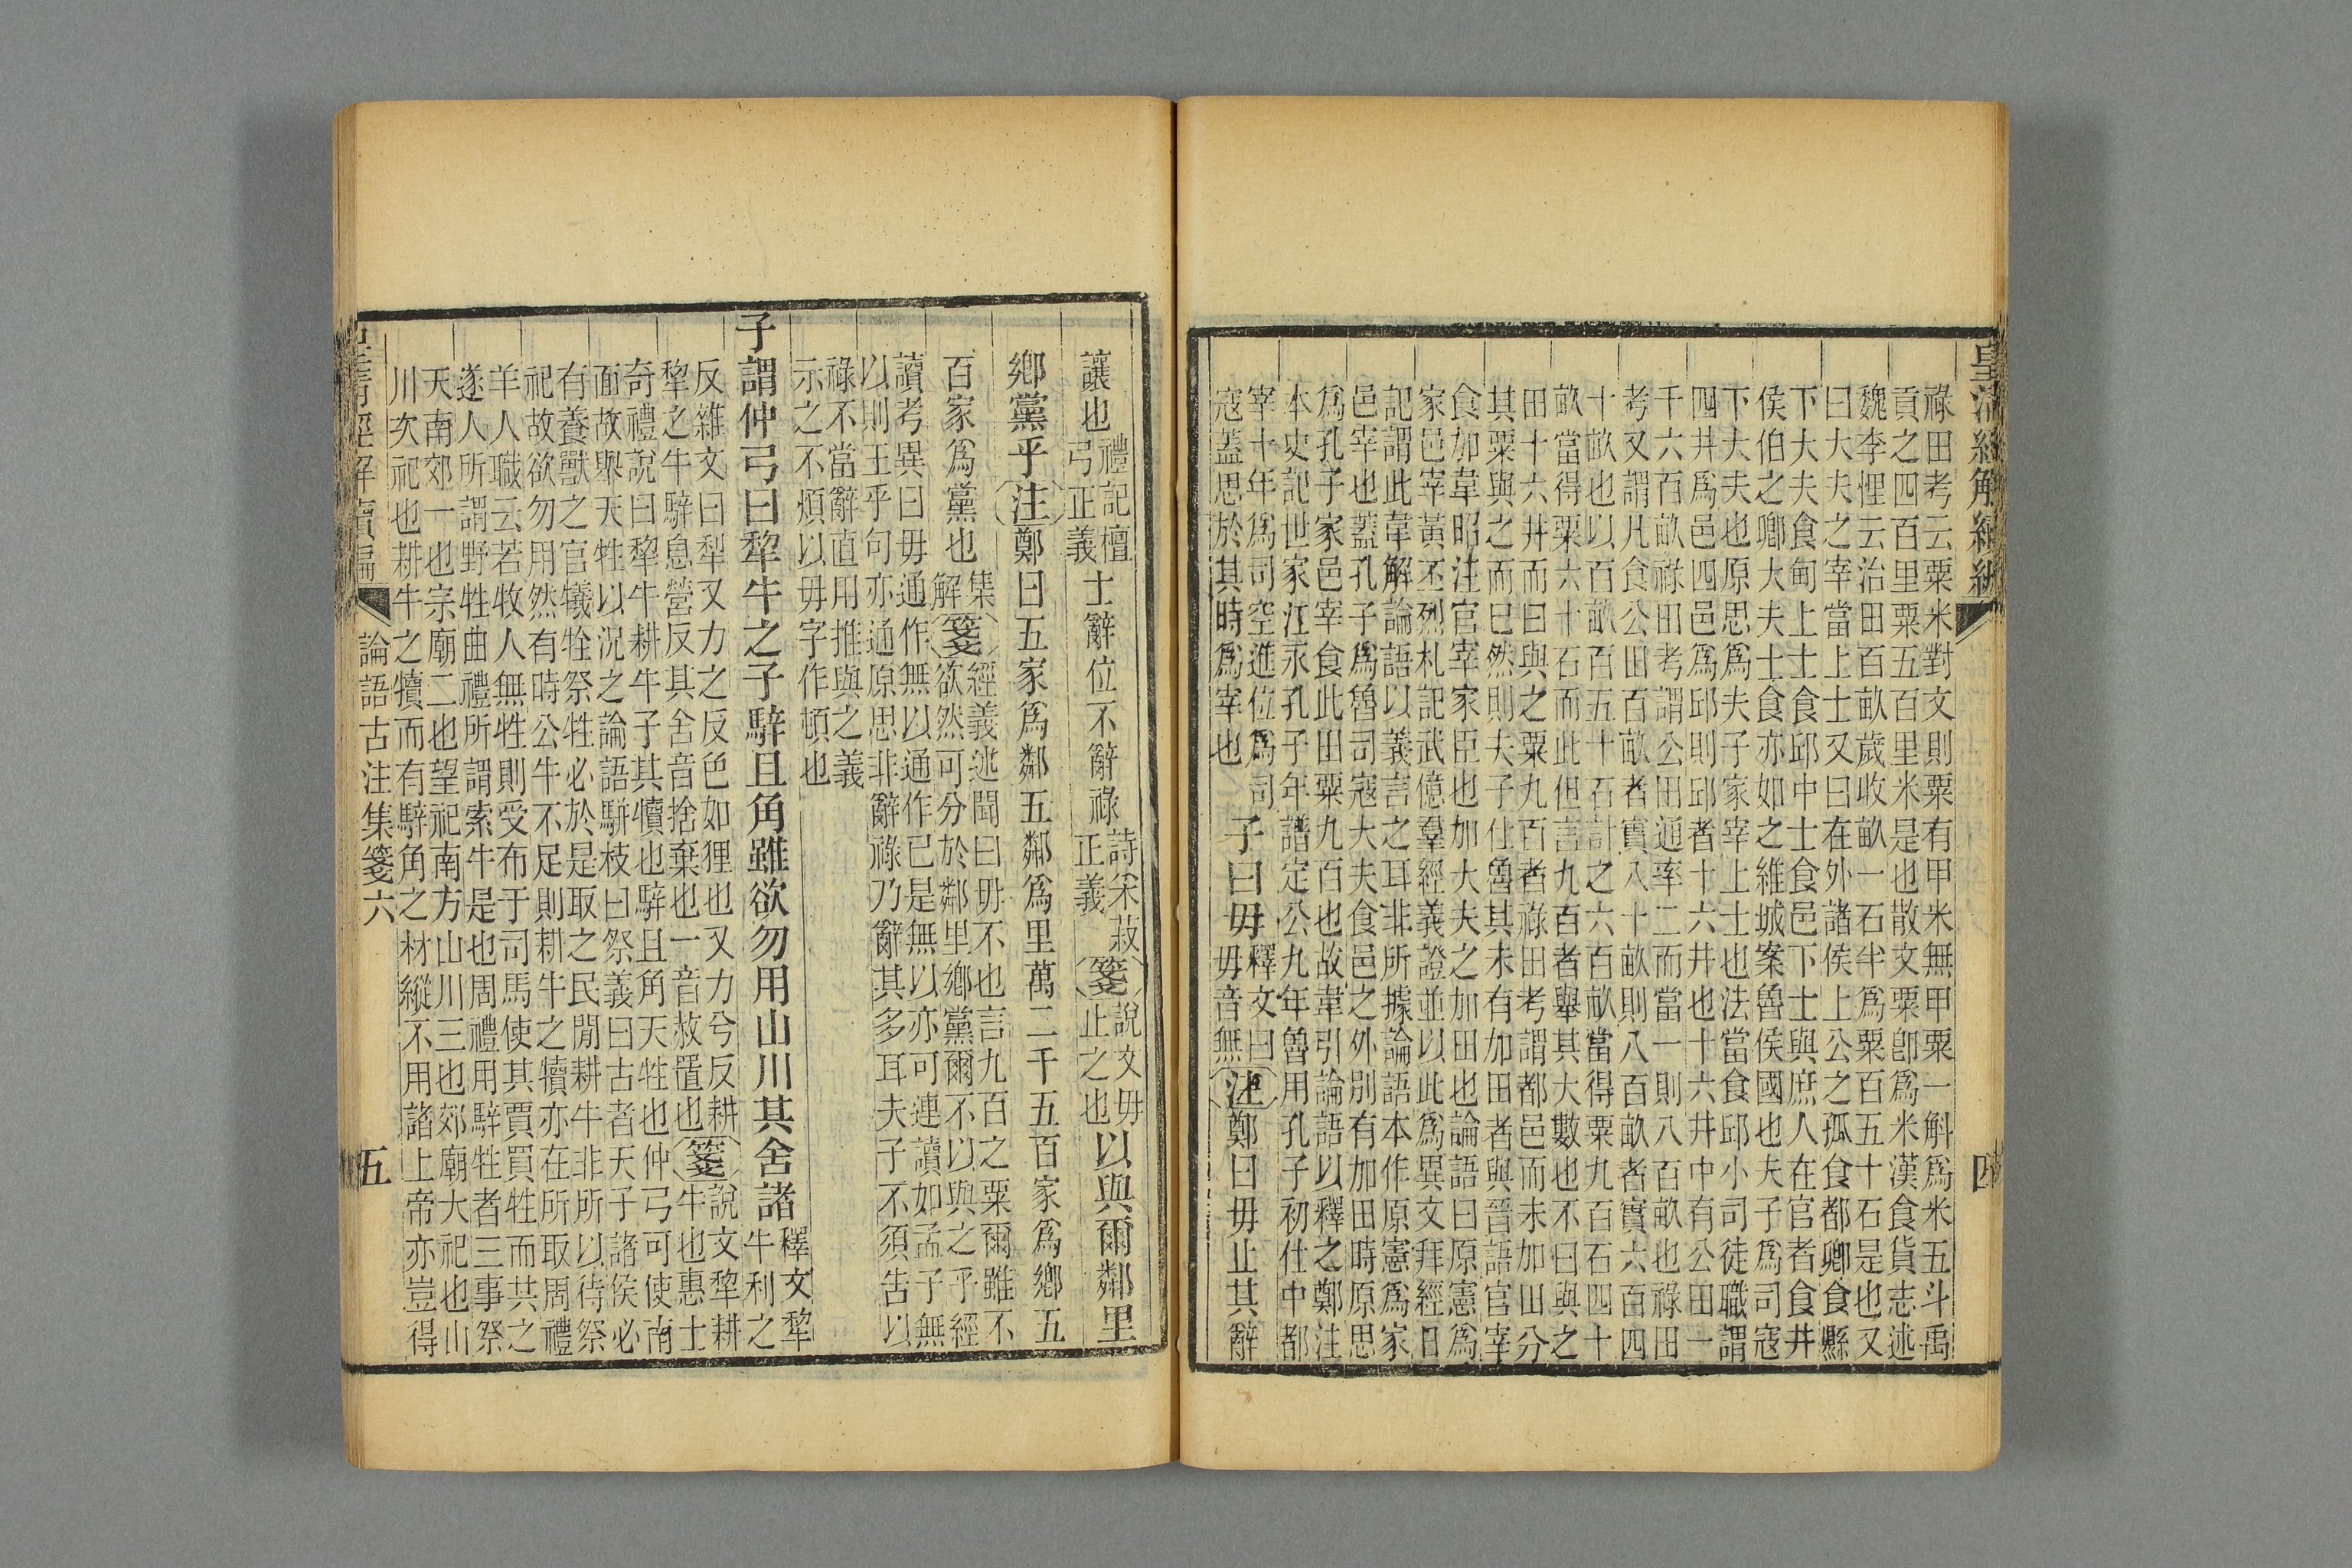 皇清經解續編
四
祿田考云粟米對文則粟有甲米無甲粟一斛爲米五斗禹
貢之四百里粟五百里米是也散文粟卽爲米漢食貨志述
魏李悝云治田百畝歲收畝一石半爲粟百五十石是也又
曰大夫之宰當上士又曰在外諸侯上公之孤食都卿食縣
下大夫食甸上士食邱中士食邑下士與庶人在官者食井
侯伯之卿大夫士食亦如之維城案魯侯國也夫子爲司寇
下大夫也原思爲夫子家宰上士也法當食邱小司徒職謂
四井爲邑四邑爲邱則邱者十六井也十六井中有公田一
千六百畝祿田考謂公田通率二而當一則八百畝也祿田
考又謂凡食公田百畝者實八十畝則八百畝者實六百四
十畝也以百畝百五十石計之六百畝當得粟九百石四十
畝當得粟六十石而此但言九百者舉其大數也不曰與之
田十六井而曰與之粟九百者祿田考謂都邑而未加田分
其粟與之而已然則夫子仕魯其未有加田者與晉語官宰
食加韋昭注官宰家臣也加大夫之加田也論語曰原憲爲
家邑宰黃丕烈札記武億羣經義證並以此爲異文拜經日
記謂此韋解論語以義言之耳非所據論語本作原憲爲家
邑宰也蓋孔子爲魯司寇大夫食邑之外別有加田時原思
爲孔子家邑宰食此田粟九百也故韋引論語以釋之鄭注
本史記世家江永孔子年譜定公九年魯用孔子初仕中都
宰十年爲司空進位爲司
寇蓋思於其時爲宰也
子曰毋
釋文曰
毋音無
注鄭曰毋止其辭
讓也
禮記檀
弓正義
士辭位不辭祿
詩采菽
正義
箋
說文毋
止之也
以與爾鄰里
鄉黨乎注鄭曰五家爲鄰五鄰爲里萬二千五百家爲鄉五
百家爲黨也
集
解
箋
經義述聞曰毋不也言九百之粟爾雖不
欲然可分於鄰里鄉黨爾不以與之乎經
讀考異曰毋通作無以通作已是無以亦可連讀如孟子無
以則王乎句亦通原思非辭祿乃辭其多耳夫子不須告以
祿不當辭直用推與之義
示之不煩以毋字作頓也
子謂仲弓曰犂牛之子騂且角雖欲勿用山川其舍諸
釋文犂
牛利之
反維文曰犁又力之反色如狸也又力兮反耕
犂之牛騂息營反其舍音捨棄也一音赦置也
箋
說文犂耕
牛也惠士
奇禮說曰犂牛耕牛子其犢也騂且角天牲也仲弓可使南
面故舉天牲以況之論語駢枝曰祭義曰古者天子諸侯必
有養獸之官犧牷祭牲必於是取之民閒耕牛非所以待祭
祀故欲勿用然有時公牛不足則耕牛之犢亦在所取周禮
羊人職云若牧人無牲則受布于司馬使其賈買牲而共之
遂人所謂野牲曲禮所謂索牛是也周禮用騂牲者三事祭
天南郊一也宗廟二也望祀南方山川三也郊廟大祀也山
川次祀也耕牛之犢而有騂角之材縱不用諸上帝亦豈得
皇清經解續編
論語古注集箋六
五